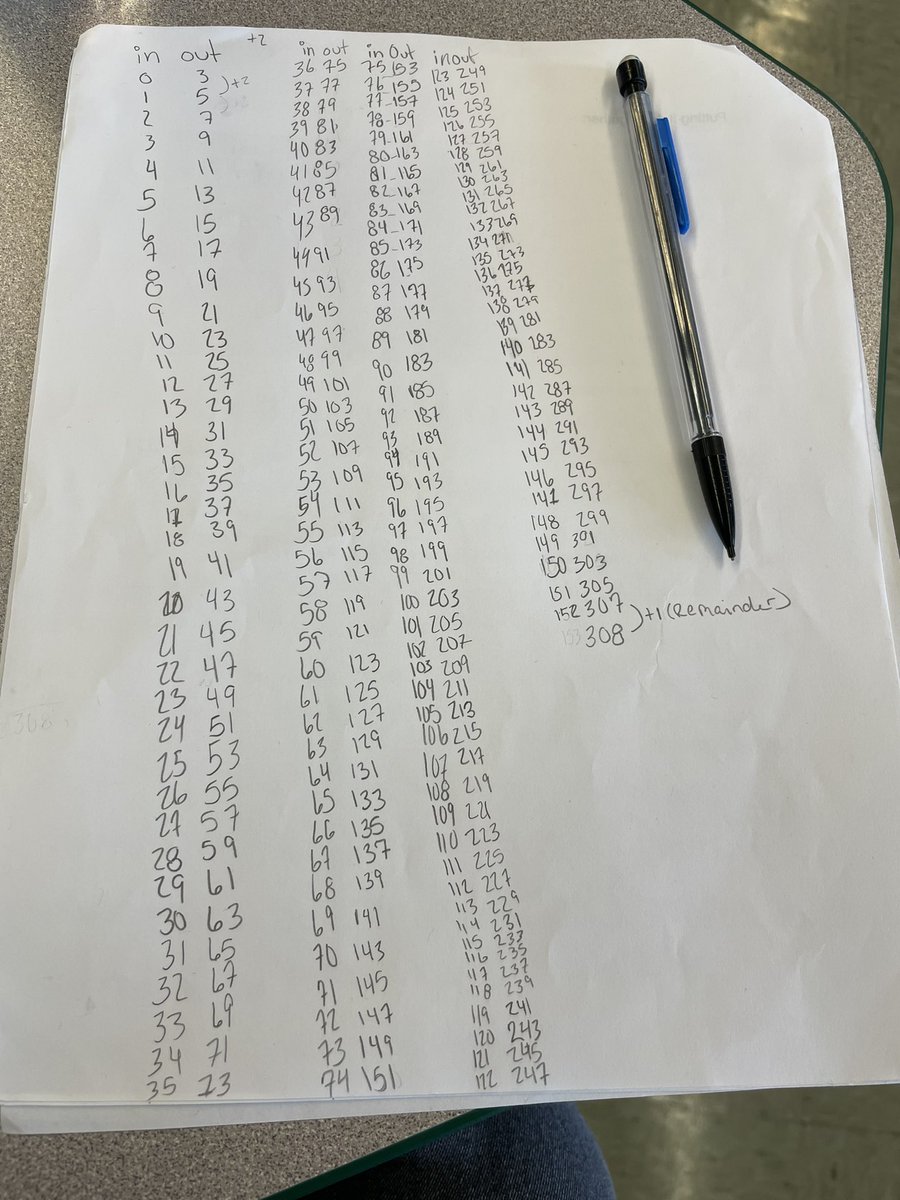 +2
in out
0 3
1 5 )+2
2 7
3 9
4 11
5 13
6 15
7 17
8 19
9 21
10 23
11 25
12 27
13 29
14 31
15 33
16 35
17 37
18 39
19 41
20 43
21 45
22 47
23 49
24 51
25 53
26 55
27 57
28 59
29 61
30 63
31 65
32 67
33 69
34 71
35 73
in out
36 75
37 77
38 79
39 81
40 83
41 85
42 87
43 89
44 91
45 93
46 95
47 97
48 99
49 101
50 103
51 105
52 107
53 109
54 111
55 113
56 115
57 117
58 119
59 121
60 123
61 125
62 127
63 129
64 131
65 133
66 135
67 137
68 139
69 141
70 143
71 145
72 147
73 149
74 151
in Out
75 153
76 155
77-157
78-159
79-161
80-163
81-165
82-167
83-169
84-171
85-173
86 175
87 177
88 179
89 181
90 183
91 185
92 187
93 189
94 191
95 193
96 195
97 197
98 199
99 201
100 203
101 205
102 207
103 209
104 211
105 213
106 215
107 217
108 219
109 221
110 223
111 225
112 227
113 229
114 231
115 233
116 235
117 237
118 239
119 241
120 243
121 245
122 247
in out
123 249
124 251
125 253
126 255
127 257
128 259
129 261
130 263
131 265
132 267
133 269
134 271
135 273
136 275
137 277
138 279
139 281
140 283
141 285
142 287
143 289
144 291
145 293
146 295
147 297
148 299
149 301
150 303
151 305
152 307
153 308 )+1 (Remainder)
308